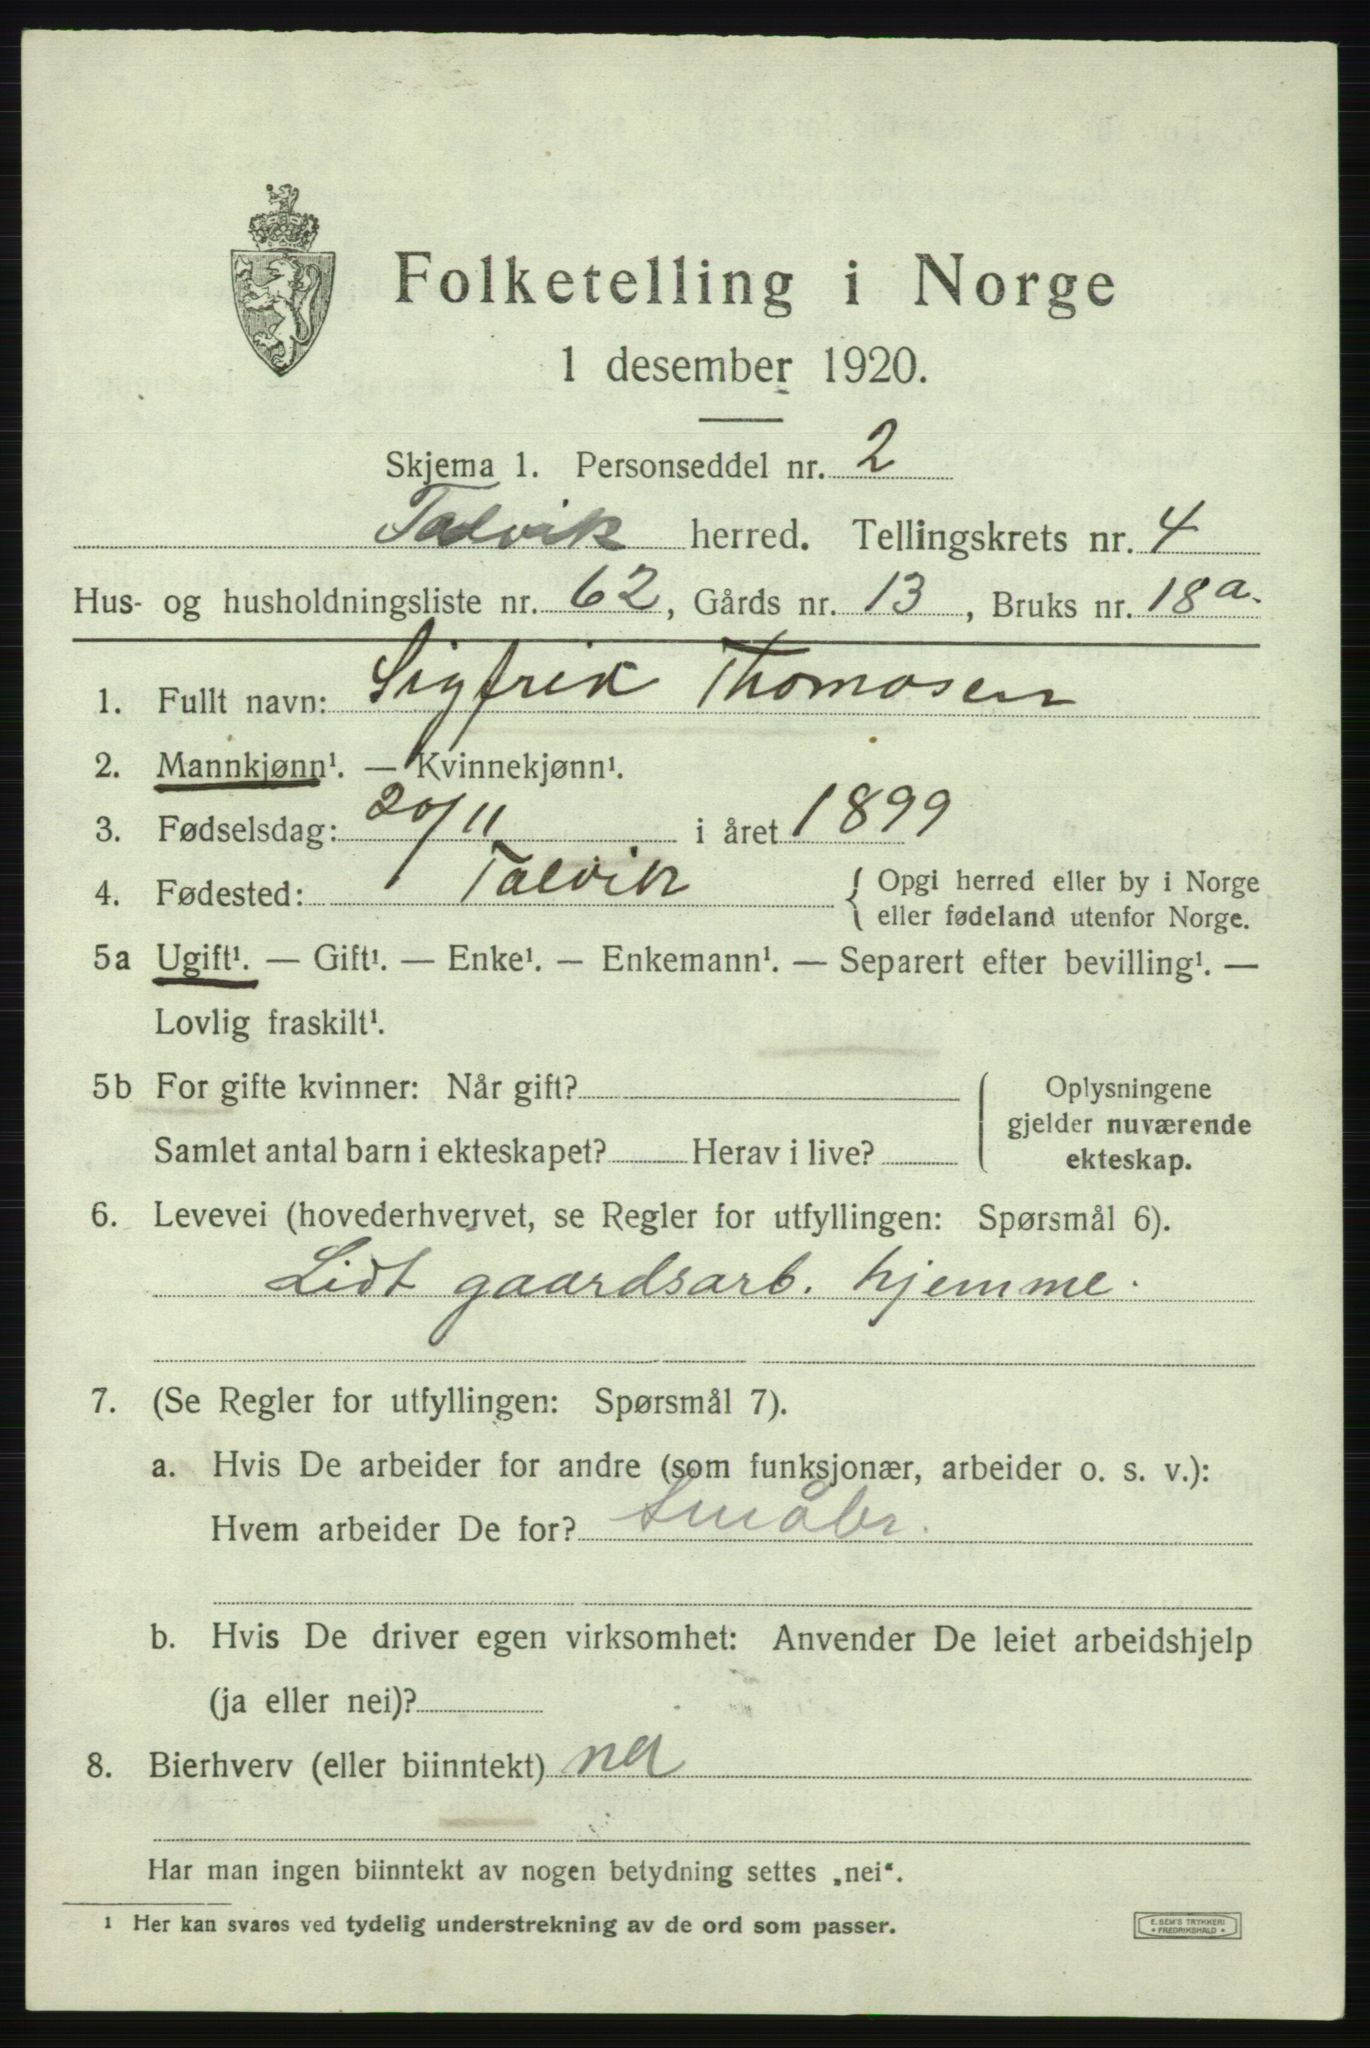 Folketelling i Norge
1 desember 1920.
Skjema 1. Personseddel nr. 2
Talvik herred. Tellingskrets nr. 4
Hus- og husholdningsliste nr. 62, Gårds nr. 13, Bruks nr. 18 a.
1. Fullt navn: Sigfrik Thomasen
2. Mannkjønn¹. — Kvinnekjønn¹.
3. Fødselsdag: 20/11 i året 1899
4. Fødested: Talvik { Opgi herred eller by i Norge
eller fødeland utenfor Norge.
5a Ugift¹. — Gift¹. — Enke¹. — Enkemann¹. — Separert efter bevilling¹. —
Lovlig fraskilt¹.
5b For gifte kvinner: Når gift?
Samlet antal barn i ekteskapet? Herav i live?
Oplysningene
gjelder nuværende
ekteskap.
6. Levevei (hovederhvervet, se Regler for utfyllingen: Spørsmål 6).
Lidt gaardsarb. hjemme.
7. (Se Regler for utfyllingen: Spørsmål 7).
a. Hvis De arbeider for andre (som funksjonær, arbeider o. s. v.):
Hvem arbeider De for? Småbr.
b. Hvis De driver egen virksomhet: Anvender De leiet arbeidshjelp
(ja eller nei)?
8. Bierhverv (eller biinntekt) nei
Har man ingen biinntekt av nogen betydning settes „nei“.
1 Her kan svares ved tydelig understrekning av de ord som passer.
E. SEM'S TRYKKERI
FREDRIKSHALD